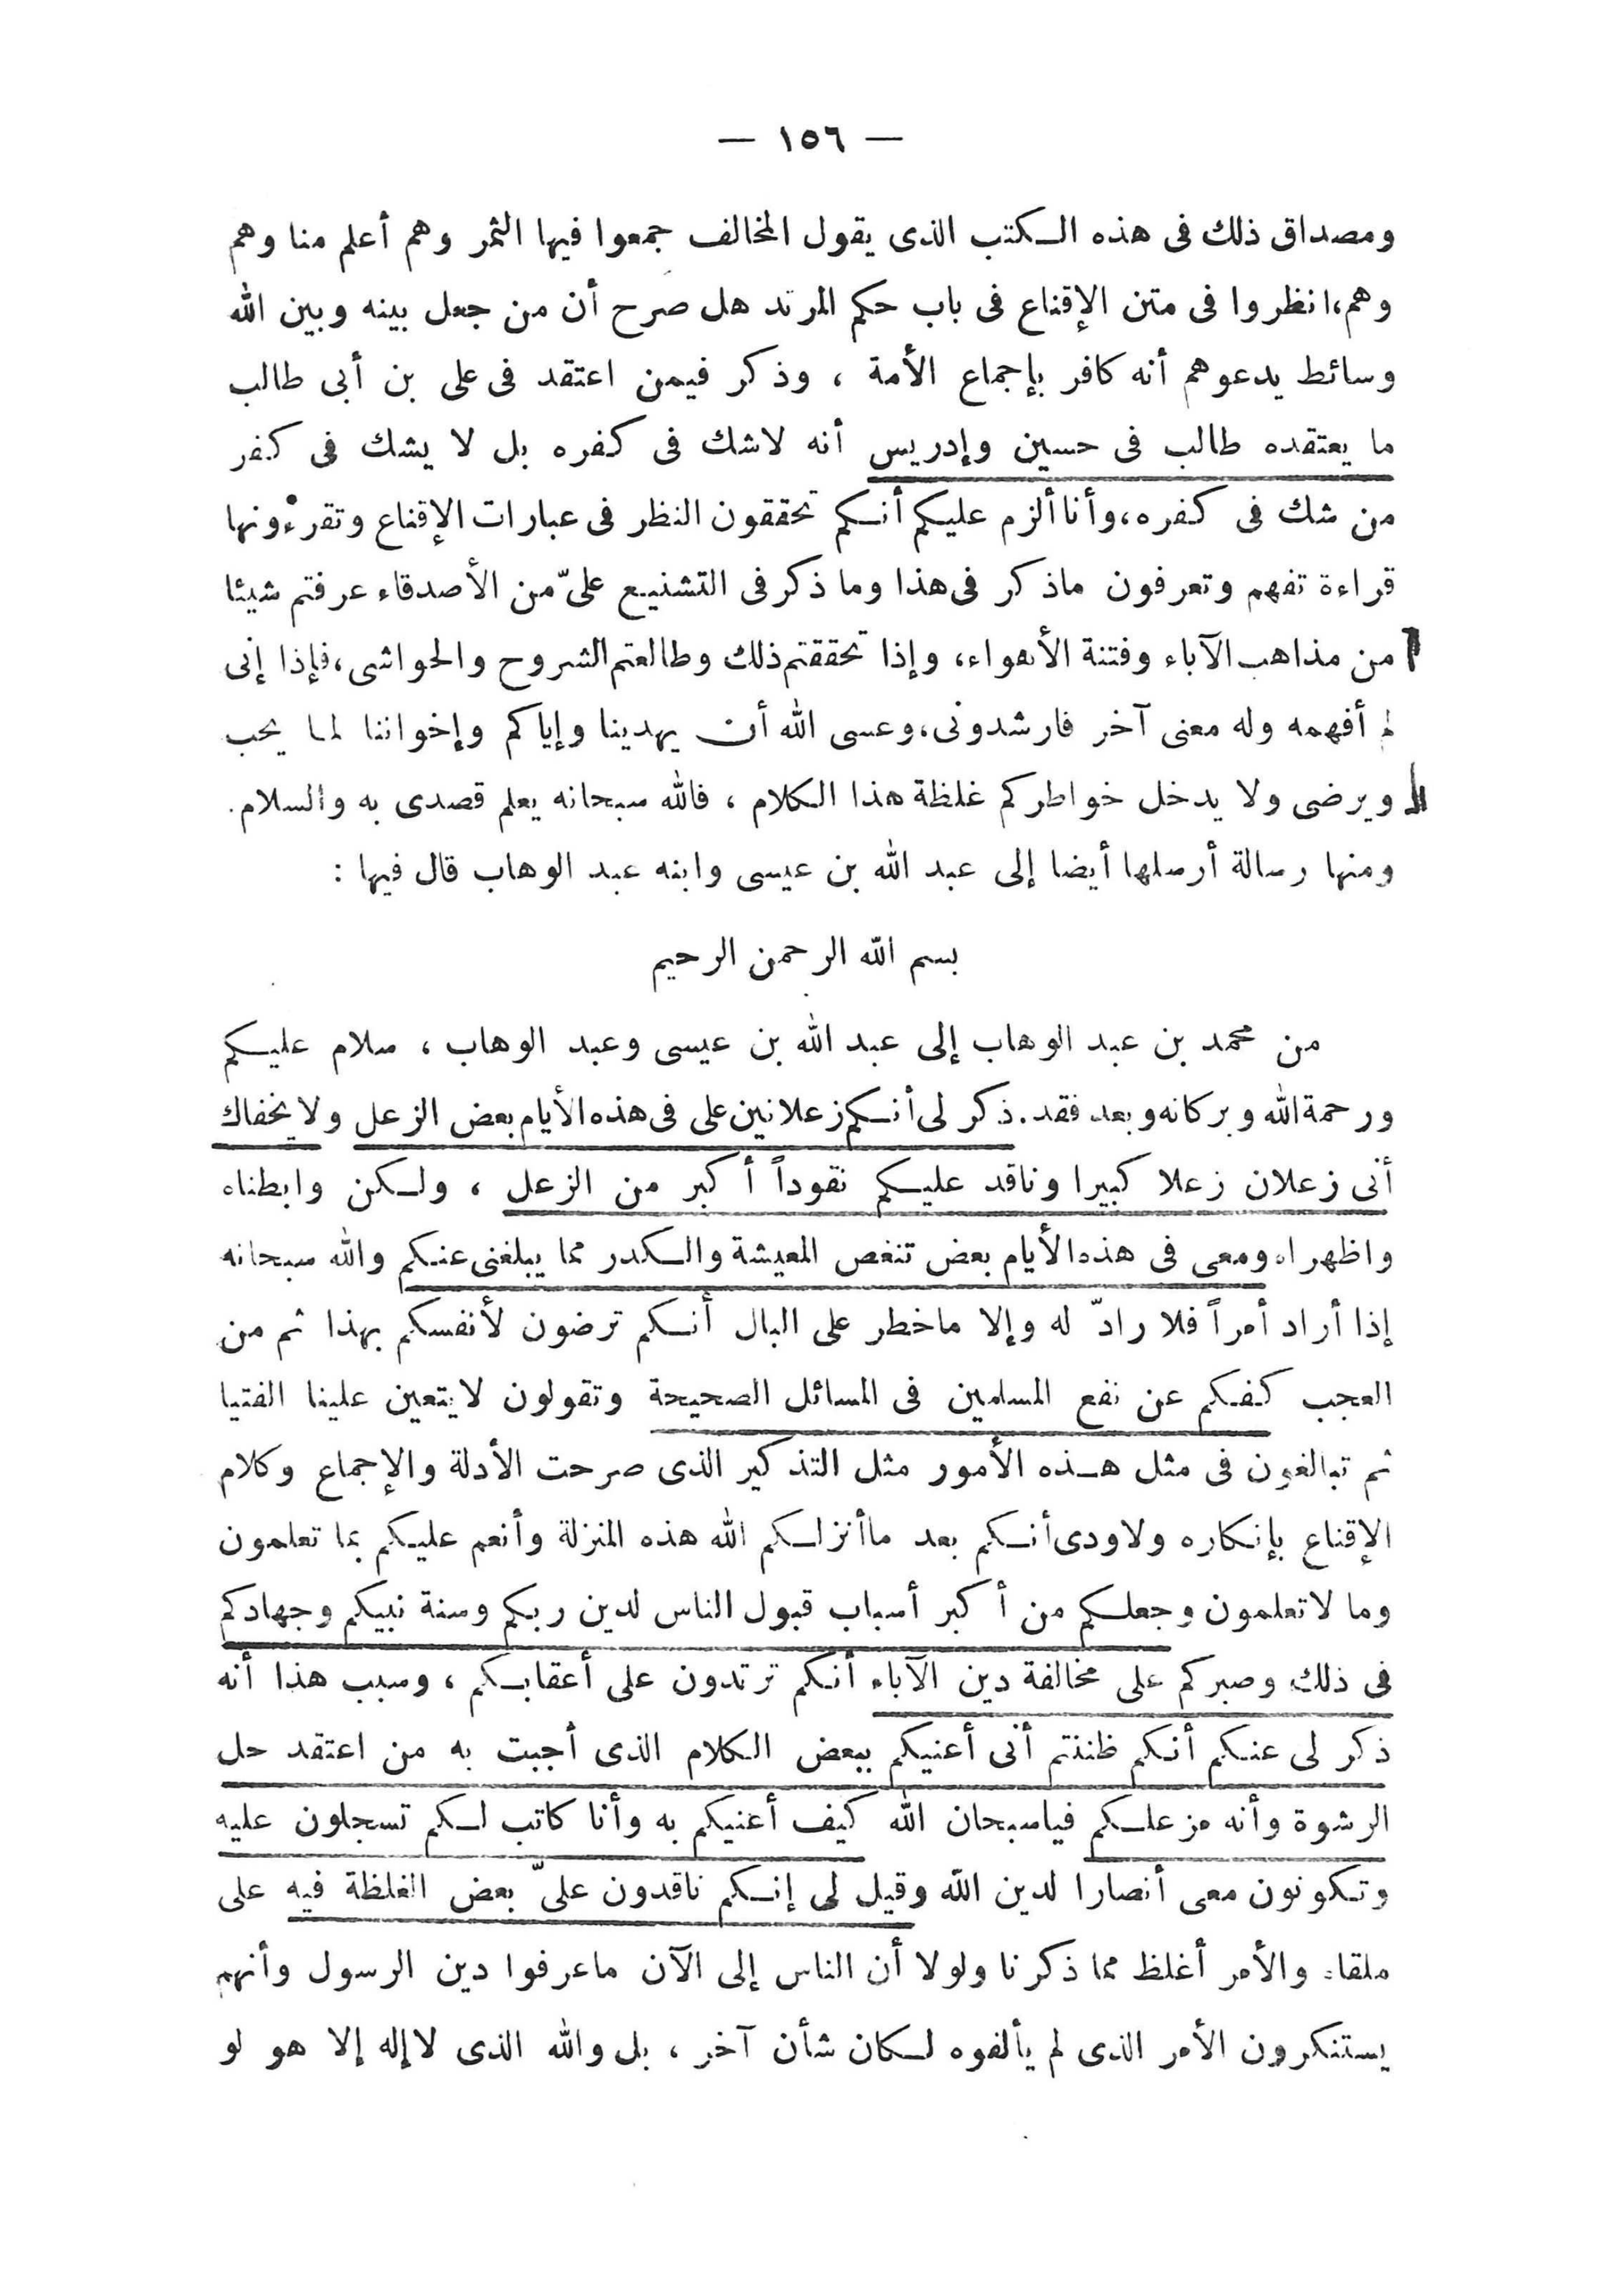 — ١٥٦ —
ومصداق ذلك فى هذه الكتب الذى يقول المخالف جمعوا فيها الثمر وهم أعلم منا وهم
وهم، انظروا فى متن الإقناع فى باب حكم المرتد هل صرح أن من جعل بينه وبين الله
وسائط يدعوهم أنه كافر بإجماع الأمة ، وذكر فيمن اعتقد فى على بن أبى طالب
ما يعتقده طالب فى حسين وإدريس أنه لاشك فى كفره بل لا يشك فى كفر
من شك فى كفره، وأنا ألزم عليكم أنكم تحققون النظر فى عبارات الإقناع وتقرءونها
قراءة تفهم وتعرفون ماذكر فى هذا وما ذكر فى التشنيع علىّ من الأصدقاء عرفتم شيئا
من مذاهب الآباء وفتنة الأهواء، وإذا تحققتم ذلك وطالعتم الشروح والحواشى، فإذا إنى
لم أفهمه وله معنى آخر فارشدونى، وعسى الله أن يهدينا وإياكم وإخواننا لما يحب
ويرضى ولا يدخل خواطركم غلظة هذا الكلام ، فالله سبحانه يعلم قصدى به والسلام.
ومنها رسالة أرسلها أيضا إلى عبد الله بن عيسى وابنه عبد الوهاب قال فيها :
بسم الله الرحمن الرحيم
من محمد بن عبد الوهاب إلى عبد الله بن عيسى وعبد الوهاب ، سلام عليكم
ورحمة الله وبركاته وبعد فقد. ذكر لى أنكم زعلانين على فى هذه الأيام بعض الزعل ولا يخفاك
أنى زعلان زعلا كبيرا وناقد عليكم نقوداً أكبر من الزعل ، ولكن وابطناه
واظهراه ومعى فى هذه الأيام بعض تنغص المعيشة والكدر مما يبلغنى عنكم والله سبحانه
إذا أراد أمراً فلا رادّ له وإلا ماخطر على البال أنكم ترضون لأنفسكم بهذا ثم من
العجب كفكم عن نفع المسلمين فى المسائل الصحيحة وتقولون لا يتعين علينا الفتيا
ثم تبالغون فى مثل هذه الأمور مثل التذكير الذى صرحت الأدلة والإجماع وكلام
الإقناع بإنكاره ولاودى أنكم بعد ماأنزلكم الله هذه المنزلة وأنعم عليكم بما تعلمون
وما لاتعلمون وجعلكم من أكبر أسباب قبول الناس لدين ربكم وسنة نبيكم وجهادكم
فى ذلك وصبركم على مخالفة دين الآباء أنكم ترتدون على أعقابكم ، وسبب هذا أنه
ذكر لى عنكم أنكم ظننتم أنى أعنيكم ببعض الكلام الذى أجبت به من اعتقد حل
الرشوة وأنه مزعلكم فياسبحان الله كيف أعنيكم به وأنا كاتب لكم تسجلون عليه
وتكونون معى أنصارا لدين الله وقيل لى إنكم ناقدون علىّ بعض الغلظة فيه على
ملقاه والأمر أغلظ مما ذكرنا ولولا أن الناس إلى الآن ماعرفوا دين الرسول وأنهم
يستنكرون الأمر الذى لم يألفوه لكان شأن آخر ، بل والله الذى لا إله إلا هو لو